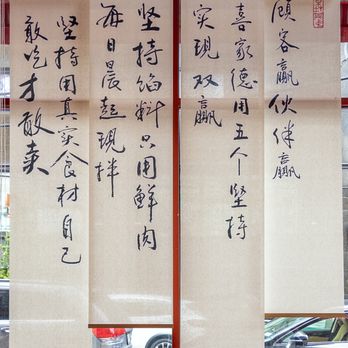 顾客赢伙伴赢
喜家德用五个坚持
实现双赢
坚持馅料只用鲜肉
每日晨起现拌
坚持用真实食材自己
敢吃才敢卖